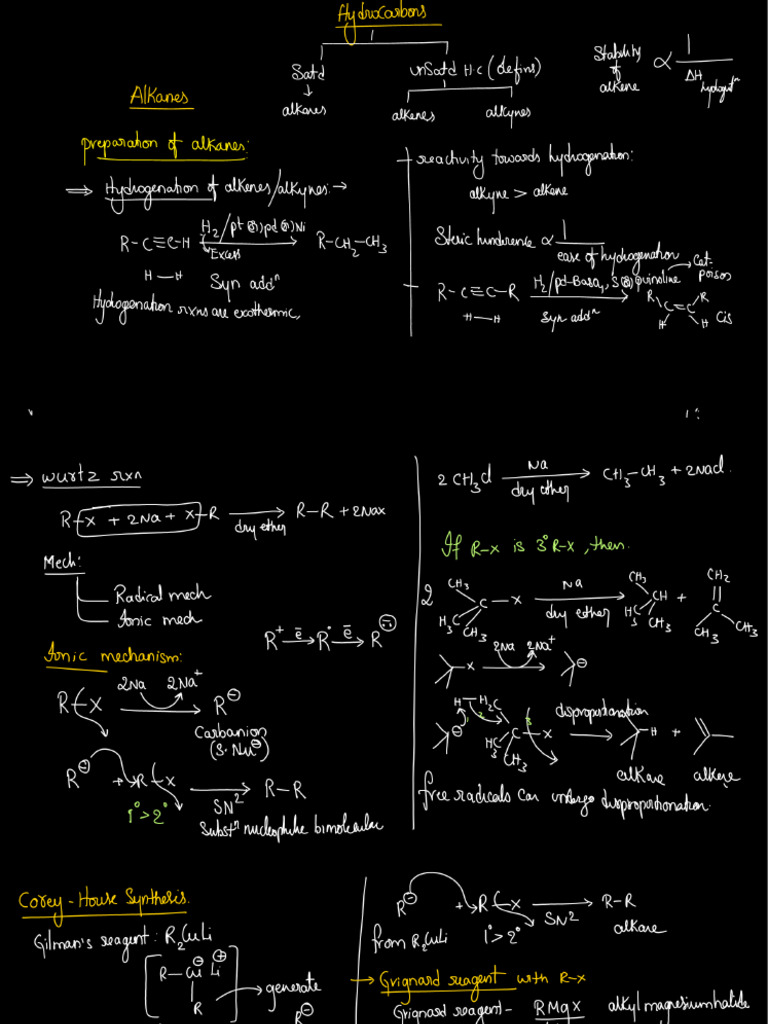 Hydrocarbons
Satd
unSatd H.C (defins)
alkanes
alkenes
alkynes
Stability of alkene ∝ 1/ΔH hydrogntⁿ
Alkanes
preparation of alkanes:
⇒ Hydrogenation of alkenes/alkynes: →
R-C≡C-H H2/pt (or) pd (or) Ni R-CH2-CH3
Excess
H—H Syn addⁿ
Hydrogenation rxns are exothermic,
- reactivity towards hydrogenation:
alkyne > alkene
Steric hinderence ∝ 1/ease of hydrogenation
- R-C≡C-R H2/pd-BaSO4, S (or) quinoline → Cat-poison
H—H Syn addⁿ
R C=C R
H H Cis
⇒ wurtz rxn
R-X + 2Na + X-R → R-R + 2Nax
dry ether
Mech:
Radical mech
Ionic mech
R+ e̅ → R• e̅ → R⊖
Ionic mechanism:
R-X 2Na 2Na+ → R⊖
Carbanion
(S.Nu⊖)
R⊖ + R-X → R-R
SN2
1°>2°
Substⁿ nucleophile bimolecular
2CH3Cl Na → CH3-CH3 + 2NaCl.
dry ether
If R-X is 3° R-X, then.
2 CH3 H3C CH3 C-X Na → CH3 H3C CH CH3 + CH2 CH3 CH3
dry ether
X 2Na 2Na+ → ⊖
H-H2C H3C CH3 C-X disproportionation → H +
1 2 3
alkane alkene
free radicals can undergo disproportionation.
Corey-House Synthesis.
Gilman's reagent: R2CuLi
[R-Cu⊖ Li⊕
R
→ generate
R⊖
R⊖ + R-X → R-R
SN2
from R2CuLi 1°>2° alkane
→ Grignard reagent with R-X
Grignard reagent- RMgX alkyl magnesiumhalide